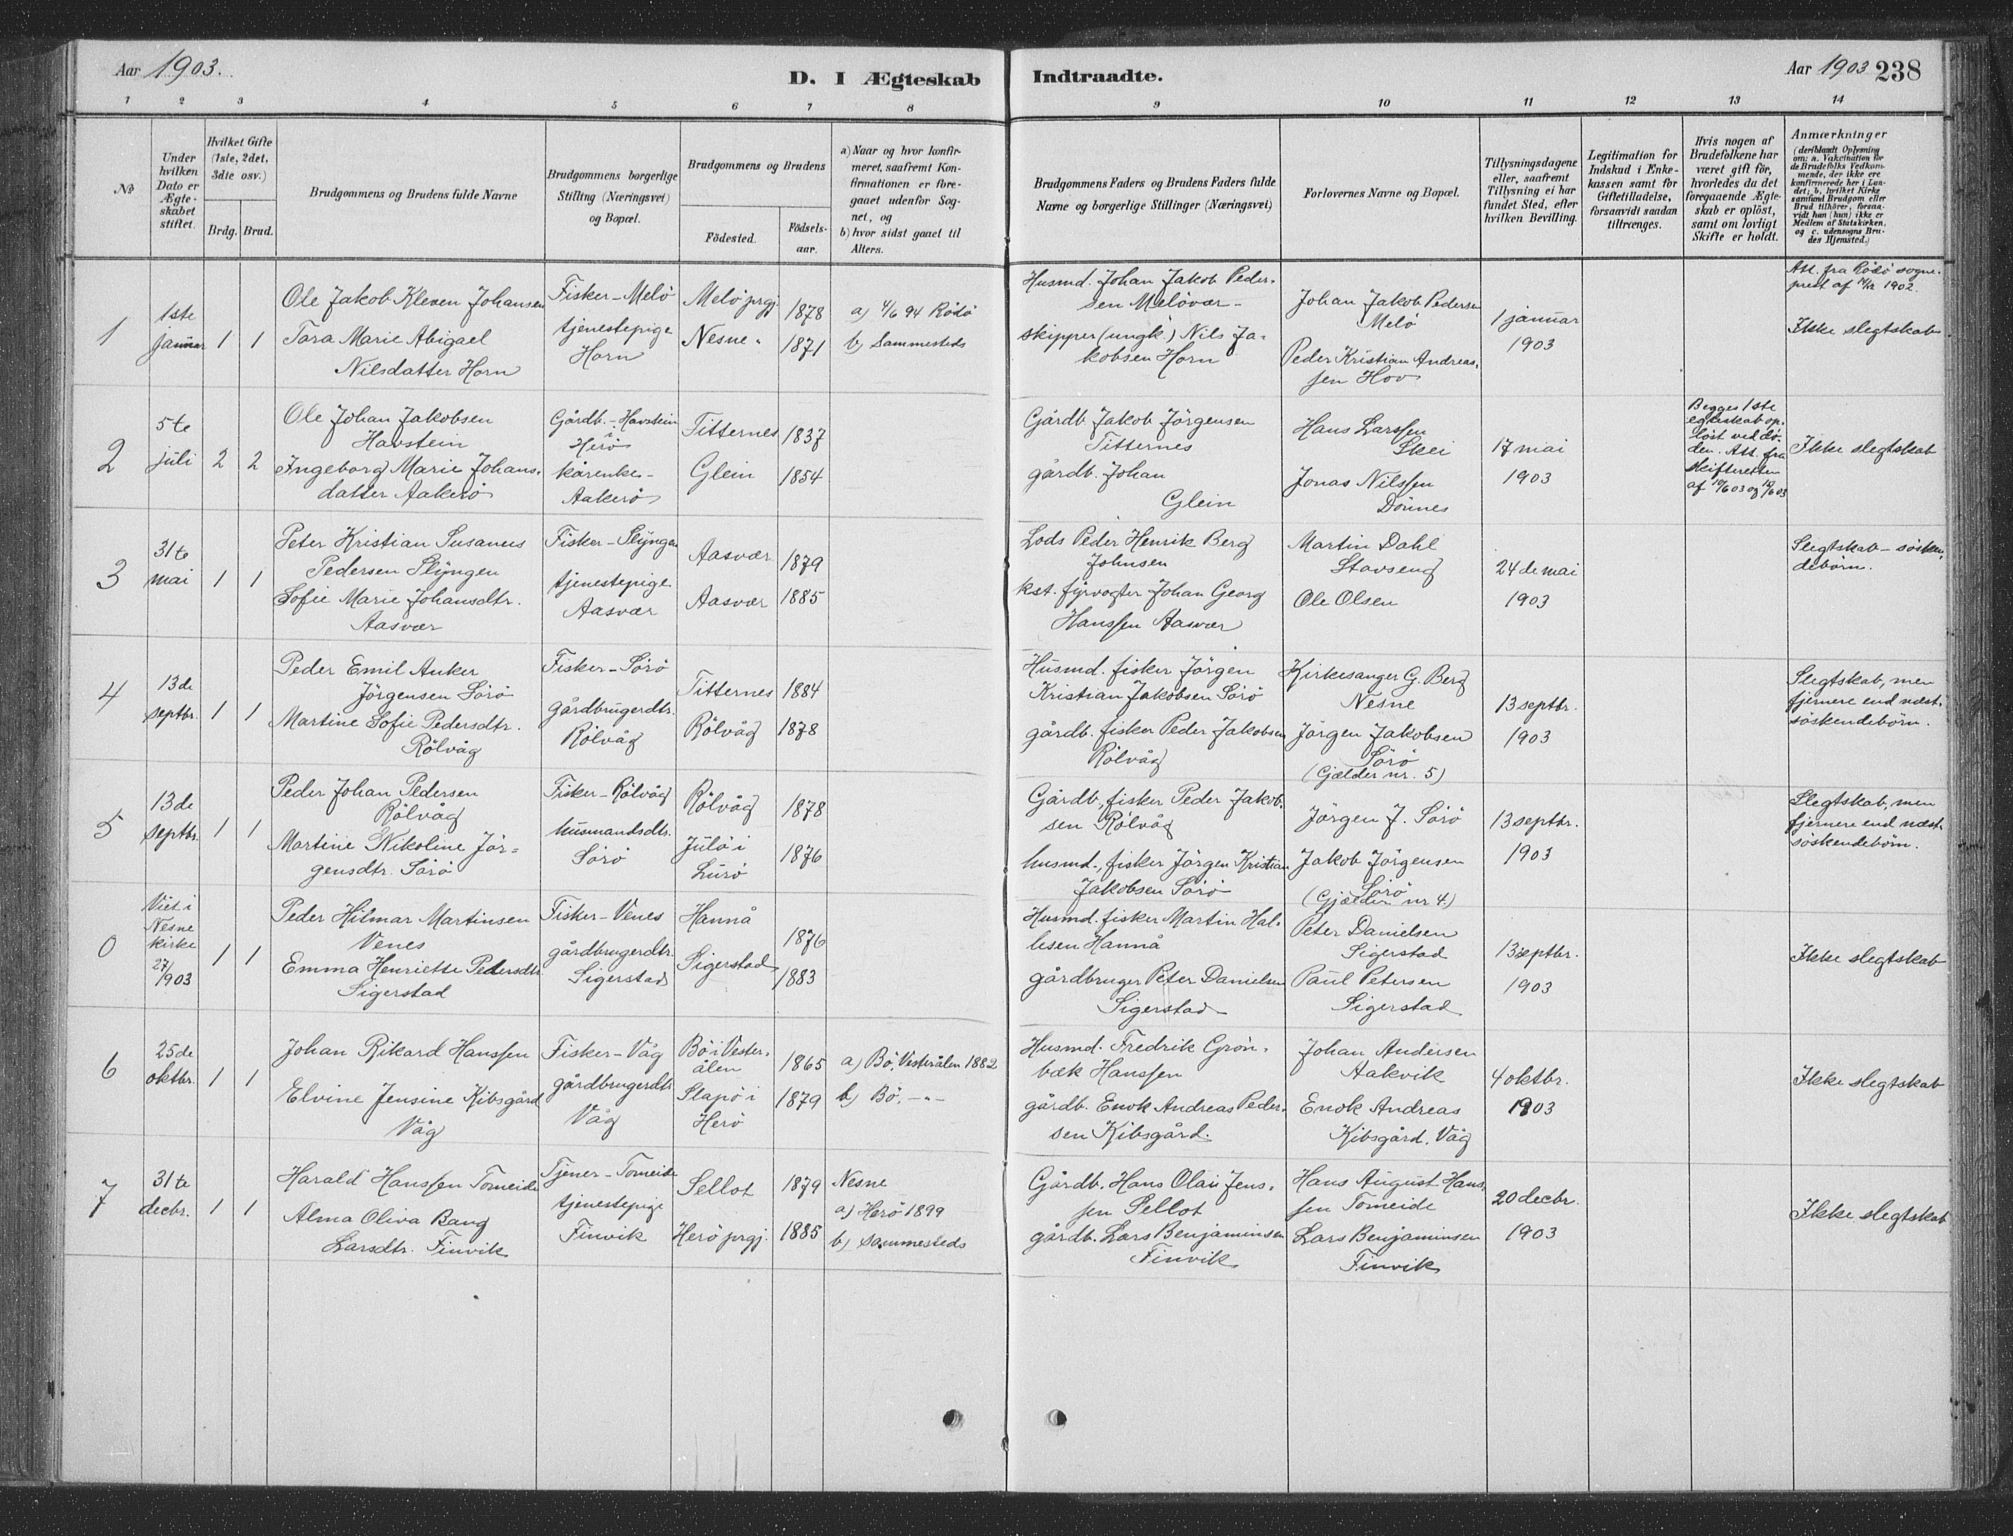 Aar 1903.
D. I Ægteskab
Indtraadte.
Aar 1903 238
1 2 3 4 5 6 7 8 9 10 11 12 13 14
No
Under
hvilken
Dato er
Ægte-
skabet
stiftet.
Hvilket Gifte
(1ste, 2det,
3die osv.)
Brdg. Brud.
Brudgommens og Brudens fulde Navne
Brudgommens borgerlige
Stilling (Næringsvei)
og Bopæl.
Brudgommens og Brudens
Fødested.
Fødsels-
aar.
a) Naar og hvor konfir-
meret, saafremt Kon-
firmationen er fore-
gaaet udenfor Sog-
net, og
b) hvor sidst gaaet til
Alters.
Brudgommens Faders og Brudens Faders fulde
Navne og borgerlige Stillinger (Næringsvei)
Forlovernes Navne og Bopæl.
Tillysningsdagene
eller, saafremt
Tillysning ei har
fundet Sted, efter
hvilken Bevilling.
Legitimation for
Indskud i Enke-
kassen samt for
Giftetilladelse,
forsaavidt saadan
tiltrænges.
Hvis nogen af
Brudefolkene har
været gift før,
hvorledes da det
foregaaende Ægte-
skab er opløst,
samt om lovligt
Skifte er holdt.
Anmærkninger
(deriblandt Oplysning
om: a. Vakcination for
de Brudefolks Vedkom-
mende, der ikke ere
konfirmerede her i Lan-
det; b. hvilket Kirke
samfund Brudgom eller
Brud tilhører, forsaa-
vidt han (hun) ikke er
Medlem af Statskirken,
og c. udensogns Bru-
des Hjemsted.)
1
1ste
januar
1 1
Ole Jakob Kleven Johansen
Tora Marie Abigael
Nilsdatter Horn
Fisker - Melö
tjenestepige
Horn
Melö prgj.
Nesne.
1878
1871
a) 4/6 94 Rödö
b) Sammesteds
Husmd. Johan Jakob Peder-
sen Melövær -
skipper (ungk.) Nils Ja-
kobsen Horn
Johan Jakob Pedersen
Melö
Peder Kristian Andreas-
sen Hov
1 januar
1903
Att. fra Rödö sogne-
prest af 1902.
Ikke slegtskab
2
5te
juli
2 2
Ole Johan Jakobsen
Havstein
Ingeborg Marie Johans-
datter Aakerö
Gårdb. - Havstein
i
Herö
kårenke -
Aakerö
Titternes
Glein
1837
1854
Gårdb. Jakob Jörgensen
Titternes
gårdb. Johan
Glein
Hans Larssen
Skei
Jonas Nilssen
Dönnes
17 mai
1903
Begges 1ste
egteskab op-
löst ved dö-
den. Att. fra
skifteretten
af 10/6 03 og 12/6 03
Ikke slegtskab
3
31te
mai
1 1
Peter Kristian Susanus
Pedersen Slyngen
Sofie Marie Johansdtr.
Aasvær
Fisker - Slyngen
tjenestepige
Aasvær
Aasvær
Aasvær
1879
1885
Lods Peder Henrik Berg
Johnsen
kst. fyrvogter Johan Georg
Hanssen Aasvær
Martin Dahl
Stavseng
Ole Olsen
24de mai
1903
Slegtskab - sösken-
debørn.
4
13de
septbr.
1 1
Peder Emil Anker
Jörgensen Sörö
Martine Sofie Pedersdtr.
Rölvåg
Fisker - Sörö
gårdbrugerdtr.
Rölvåg
Titternes
Rölvåg
1884
1878
Husmd. fisker Jörgen
Kristian Jakobsen Sörö
gårdb. fisker Peder Jakobsen
Rölvåg
Kirkesanger G. Berg
Nesne
Jörgen Jakobsen
Sörö
(Gjælder nr. 5)
13 septbr.
1903
Slegtskab, men
fjernere end næst-
söskendebørn.
5
13de
septbr.
1 1
Peder Johan Pedersen
Rölvåg
Martine Nikoline Jör-
gensdtr. Sörö
Fisker - Rölvåg
husmandsdtr.
Sörö
Rölvåg
Julö i
Lurö
1878
1876
Gårdb., fisker Peder Jakob-
sen Rölvåg
husmd., fisker Jörgen Kristian
Jakobsen Sörö
Jörgen J. Sörö
Jakob Jörgensen
Sörö
(Gjælder nr 4.)
13 septbr.
1903
Slegtskab, men
fjernere end næst-
söskendebørn.
0
Viet i
Nesne
kirke
27/
1903
1 1
Peder Hilmar Martinsen
Venes
Emma Henriette Pedersdtr.
Sigerstad
Fisker - Venes
gårdbrugerdtr.
Sigerstad
Hannå
Sigerstad
1876
1883
Husmd. fisker Martin Hal-
lesen Hannå
gårdbruger Peter Danielsen
Sigerstad
Peter Danielsen
Sigerstad
Paul Petersen
Sigerstad
13 septbr.
1903
Ikke slegtskab
6
25de
oktbr.
1 1
Johan Rikard Hanssen
Elvine Jensine Kibsgård
Våg
Fisker - Våg
gårdbrugerdtr.
Våg
Bö i Vester-
ålen
Slapö i
Herö
1865
1879
a) Bö, Vesterålen 1882
b) Bö, -"-
Husmd. Fredrik Grön-
bæk Hanssen
gårdb. Enok Andreas Peder-
sen Kibsgård.
Johan Andersen
Aakvik
Enok Andreas
Kibsgård. Våg
4 oktbr.
1903
Ikke slegtskab
7
31te
decbr.
1 1
Harald Hanssen Tomeide
Alma Oliva Bang
Larsdtr. Finvik
Tjener - Tomeide
tjenestepige
Finvik
Sellot
Herö prgj.
1879
1885
Nesne
a) Herö 1899
b) Sammesteds
Gårdb. Hans Olai Jens-
sen Sellot
gårdb. Lars Benjaminsen
Finvik
Hans August Hans-
sen Tomeide
Lars Benjaminsen
Finvik
20 decbr.
1903
Ikke slegtskab